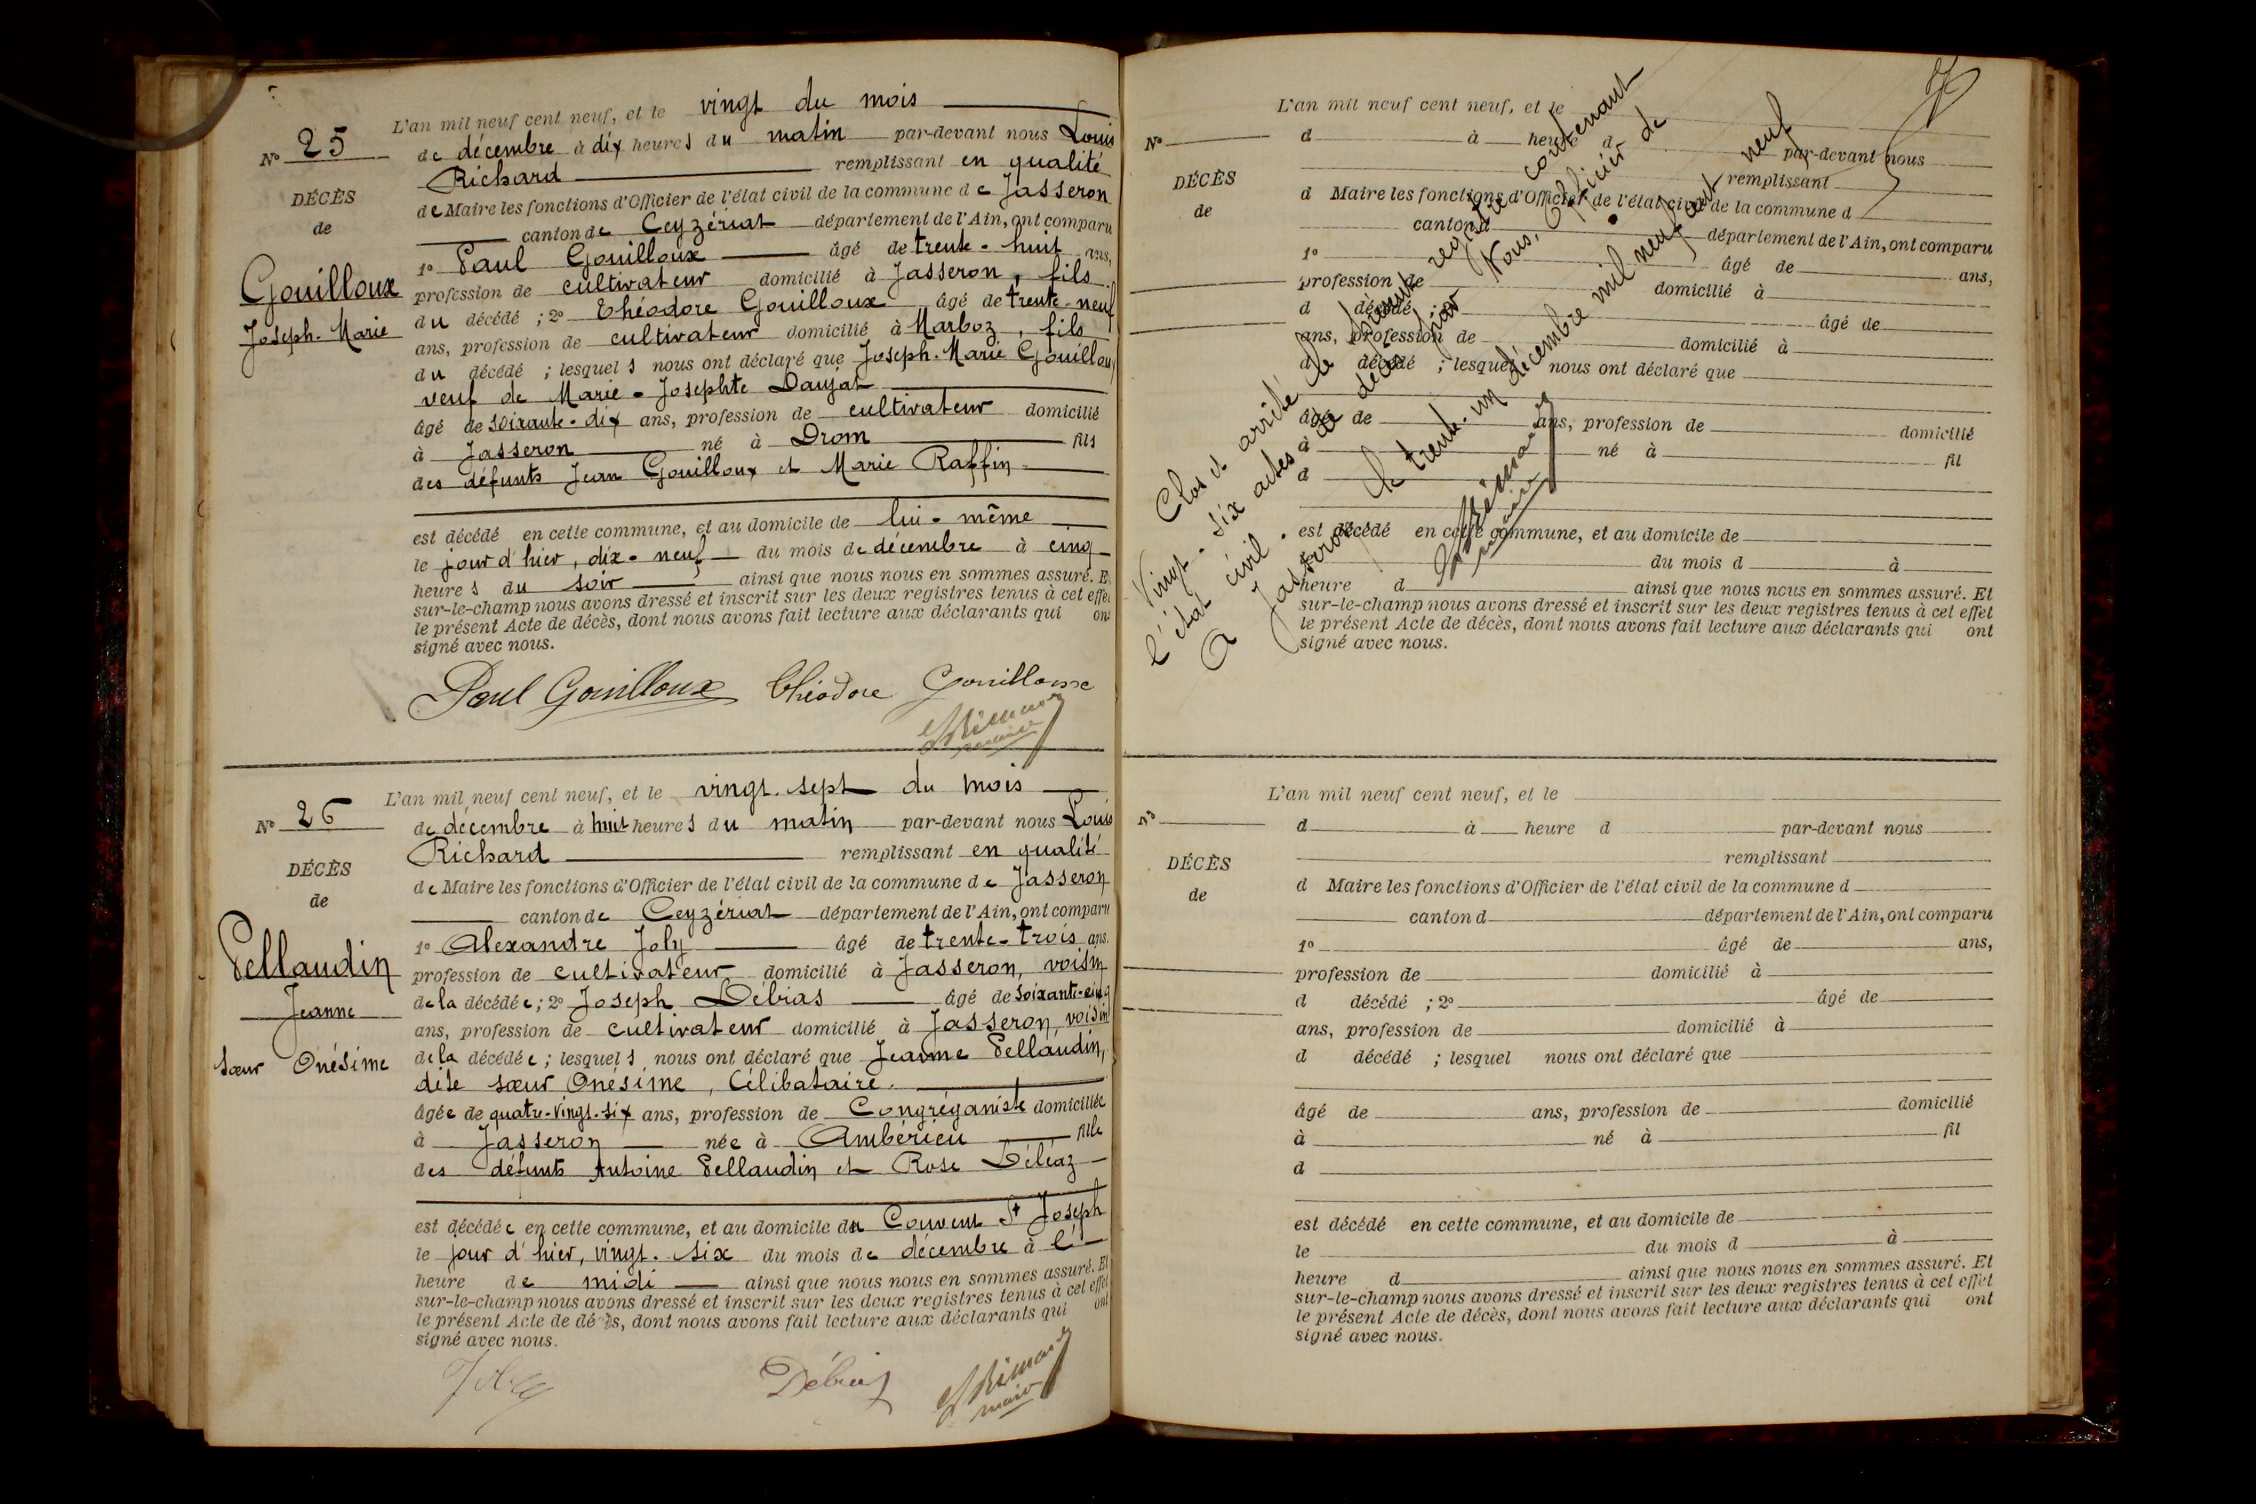 L'an mil neuf cent neuf, et le vingt du mois
de décembre à dix heures du matin par-devant nous Louis
Richard remplissant en qualité
de Maire les fonctions d'Officier de l'état civil de la commune de Jasseron
canton de Ceyzériat département de l'Ain, ont comparu
1º Paul Gouilloux âgé de trente-huit ans,
profession de cultivateur domicilié à Jasseron, fils
du décédé ; 2º Théodore Gouilloux âgé de trente-neuf
ans, profession de cultivateur domicilié à Marboz, fils
du décédé ; lesquels nous ont déclaré que Joseph-Marie Gouilloux
veuf de Marie-Josephte Daujat
âgé de soixante-dix ans, profession de cultivateur domicilié
à Jasseron né à Drom fils
des défunts Jean Gouilloux et Marie Raffin
est décédé en cette commune, et au domicile de lui-même
le jour d'hier, dix-neuf du mois de décembre à cinq
heures du soir ainsi que nous nous en sommes assuré. E
sur-le-champ nous avons dressé et inscrit sur les deux registres tenus à cet effet
le présent Acte de décès, dont nous avons fait lecture aux déclarants qui ont
signé avec nous.
Nº 25
DÉCÈS
de
Gouilloux
Joseph-Marie
Paul Gouilloux Théodore Gouilloux
maire
L'an mil neuf cent neuf, et le vingt-sept du mois
de décembre à huit heures du matin par-devant nous Louis
Richard remplissant en qualité
de Maire les fonctions d'Officier de l'état civil de la commune de Jasseron
canton de Ceyzériat département de l'Ain, ont comparu
1º Alexandre Joly âgé de trente-trois ans,
profession de cultivateur domicilié à Jasseron, voisin
de la décédée ; 2º Joseph Débias âgé de soixante-cinq
ans, profession de cultivateur domicilié à Jasseron, voisin
de la décédée ; lesquels nous ont déclaré que Jeanne Pellaudin,
dite sœur Onésime, Célibataire.
âgée de quatre-vingt-six ans, profession de Congréganiste domiciliée
à Jasseron née à Ambérieu fille
des défunts Antoine Pellaudin et Rose Déléaz
est décédée en cette commune, et au domicile du Couvent St Joseph
le jour d'hier, vingt-six du mois de décembre à l'
heure de midi ainsi que nous nous en sommes assuré. Et
sur-le-champ nous avons dressé et inscrit sur les deux registres tenus à cet effet
le présent Acte de décès, dont nous avons fait lecture aux déclarants qui ont
signé avec nous.
Nº 26
DÉCÈS
de
Pellaudin
Jeanne
sœur Onésime
Joly Débias
maire
L'an mil neuf cent neuf, et le
d à heure d par-devant nous
remplissant
d Maire les fonctions d'Officier de l'état civil de la commune d
canton d département de l'Ain, ont comparu
1º âgé de ans,
profession de domicilié à
d décédé ; 2º âgé de
ans, profession de domicilié à
d décédé ; lesquel nous ont déclaré que
âgé de ans, profession de domicilié
à né à fil
d
est décédé en cette commune, et au domicile de
du mois d à
heure d ainsi que nous nous en sommes assuré. Et
sur-le-champ nous avons dressé et inscrit sur les deux registres tenus à cet effet
le présent Acte de décès, dont nous avons fait lecture aux déclarants qui ont
signé avec nous.
Nº
DÉCÈS
de
Clos et arrêté le présent registre contenant
Vingt-six actes de décès par Nous, Officier de
l'état civil.
A Jasseron, le trente-un décembre mil neuf cent neuf
maire
L'an mil neuf cent neuf, et le
d à heure d par-devant nous
remplissant
d Maire les fonctions d'Officier de l'état civil de la commune d
canton d département de l'Ain, ont comparu
1º âgé de ans,
profession de domicilié à
d décédé ; 2º âgé de
ans, profession de domicilié à
d décédé ; lesquel nous ont déclaré que
âgé de ans, profession de domicilié
à né à fil
d
est décédé en cette commune, et au domicile de
le du mois d à
heure d ainsi que nous nous en sommes assuré. Et
sur-le-champ nous avons dressé et inscrit sur les deux registres tenus à cet effet
le présent Acte de décès, dont nous avons fait lecture aux déclarants qui ont
signé avec nous.
Nº
DÉCÈS
de